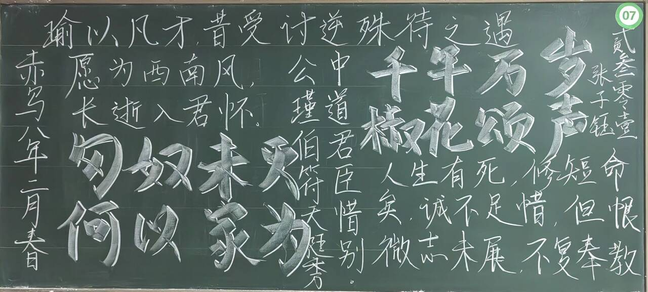 07
瑜以凡才,昔受讨逆殊待之遇
愿为西南风,
长逝入君怀。
赤乌八年二月春
匈奴未灭
何以家为
公瑾伯符天挺秀
中道君臣惜别。
千年万岁
椒花颂声
贰叁零壹
张子钰
人生有死,修短命
矣,诚不足惜,但恨
微志未展,不复奉教